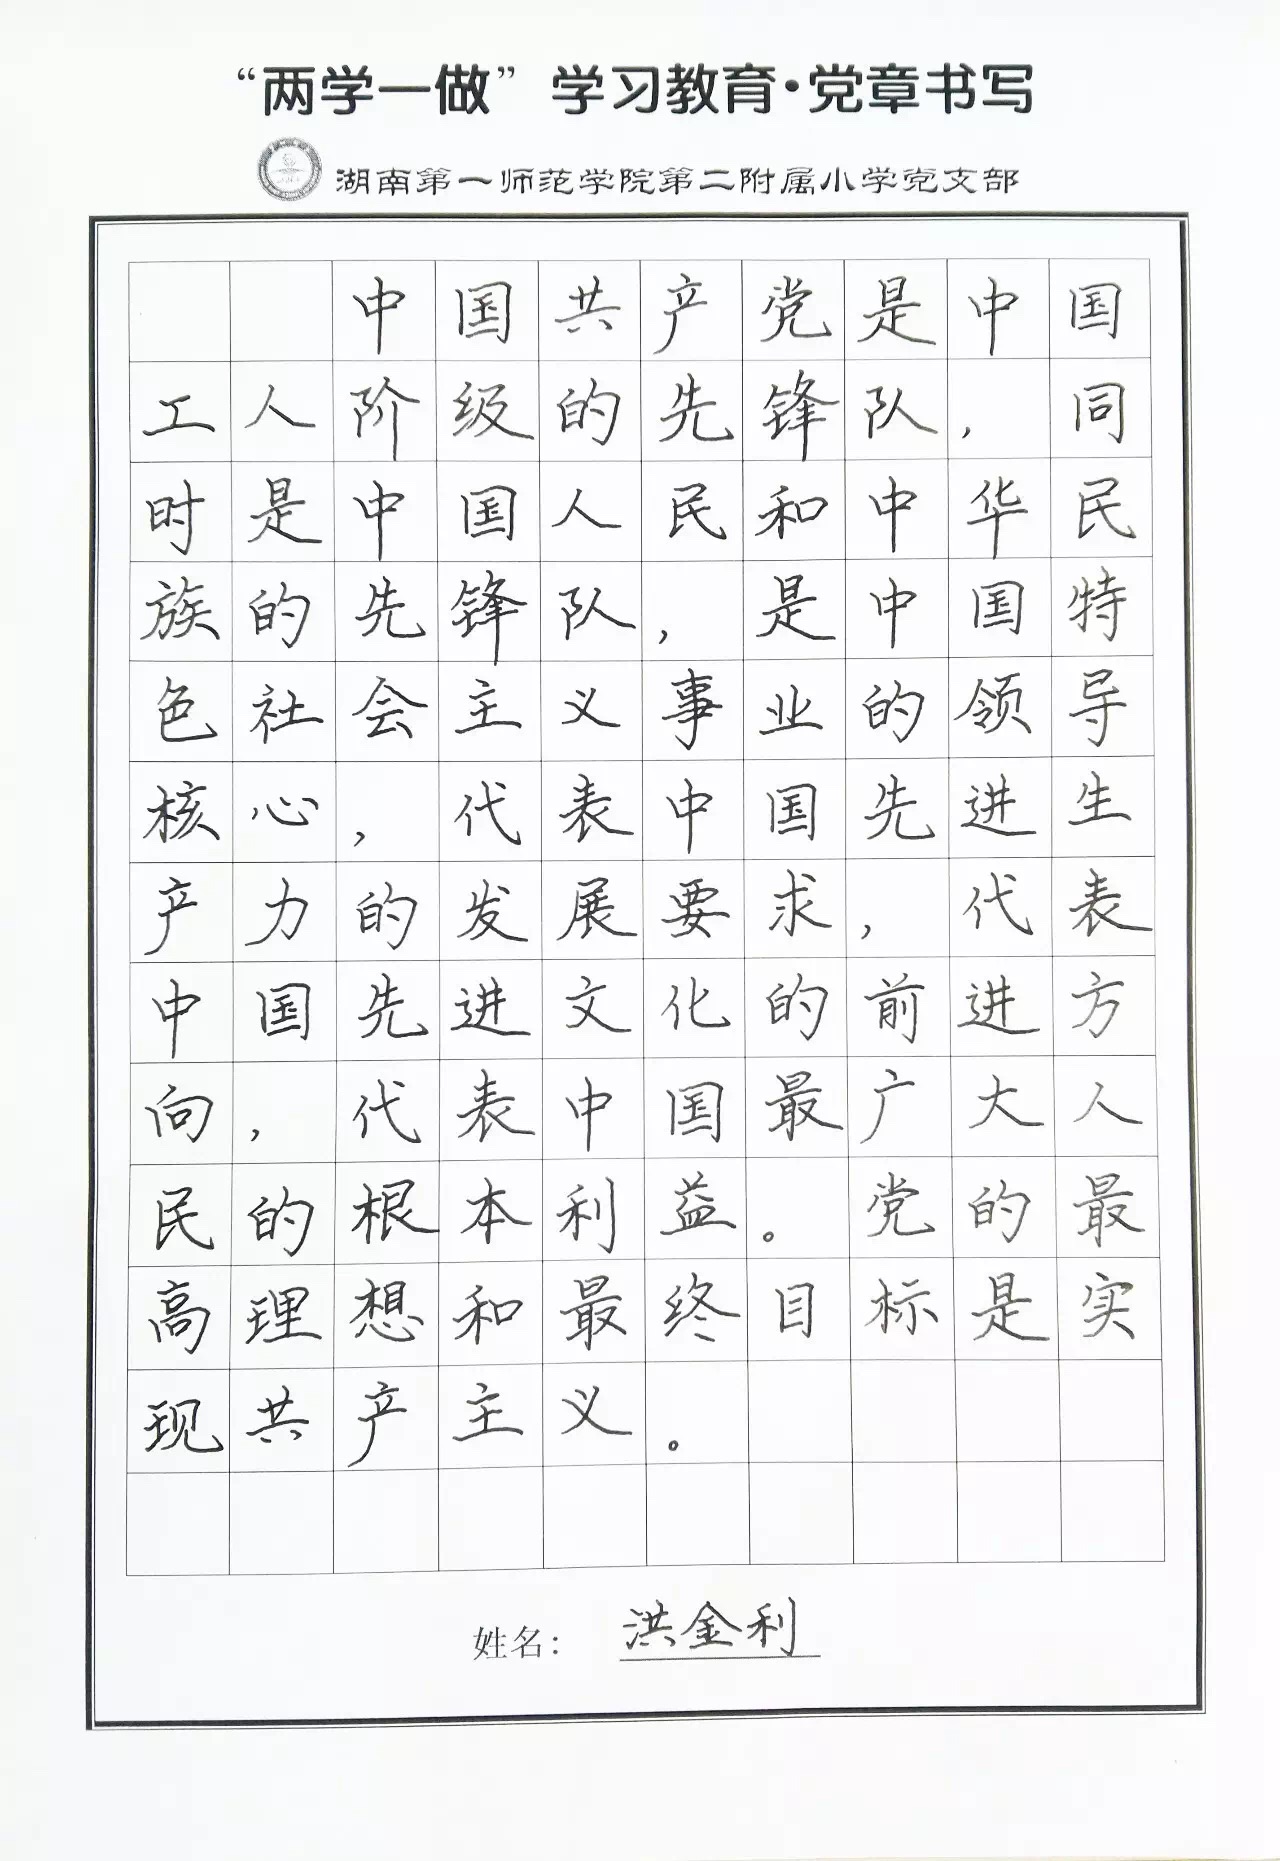 “两学一做”学习教育·党章书写
湖南第一师范学院第二附属小学党支部
中国共产党是中国
工人阶级的先锋队，同
时是中国人民和中华民
族的先锋队，是中国特
色社会主义事业的领导
核心，代表中国先进生
产力的发展要求，代表
中国先进文化的前进方
向，代表中国最广大人
民的根本利益。党的最
高理想和最终目标是实
现共产主义。
姓名：洪金利